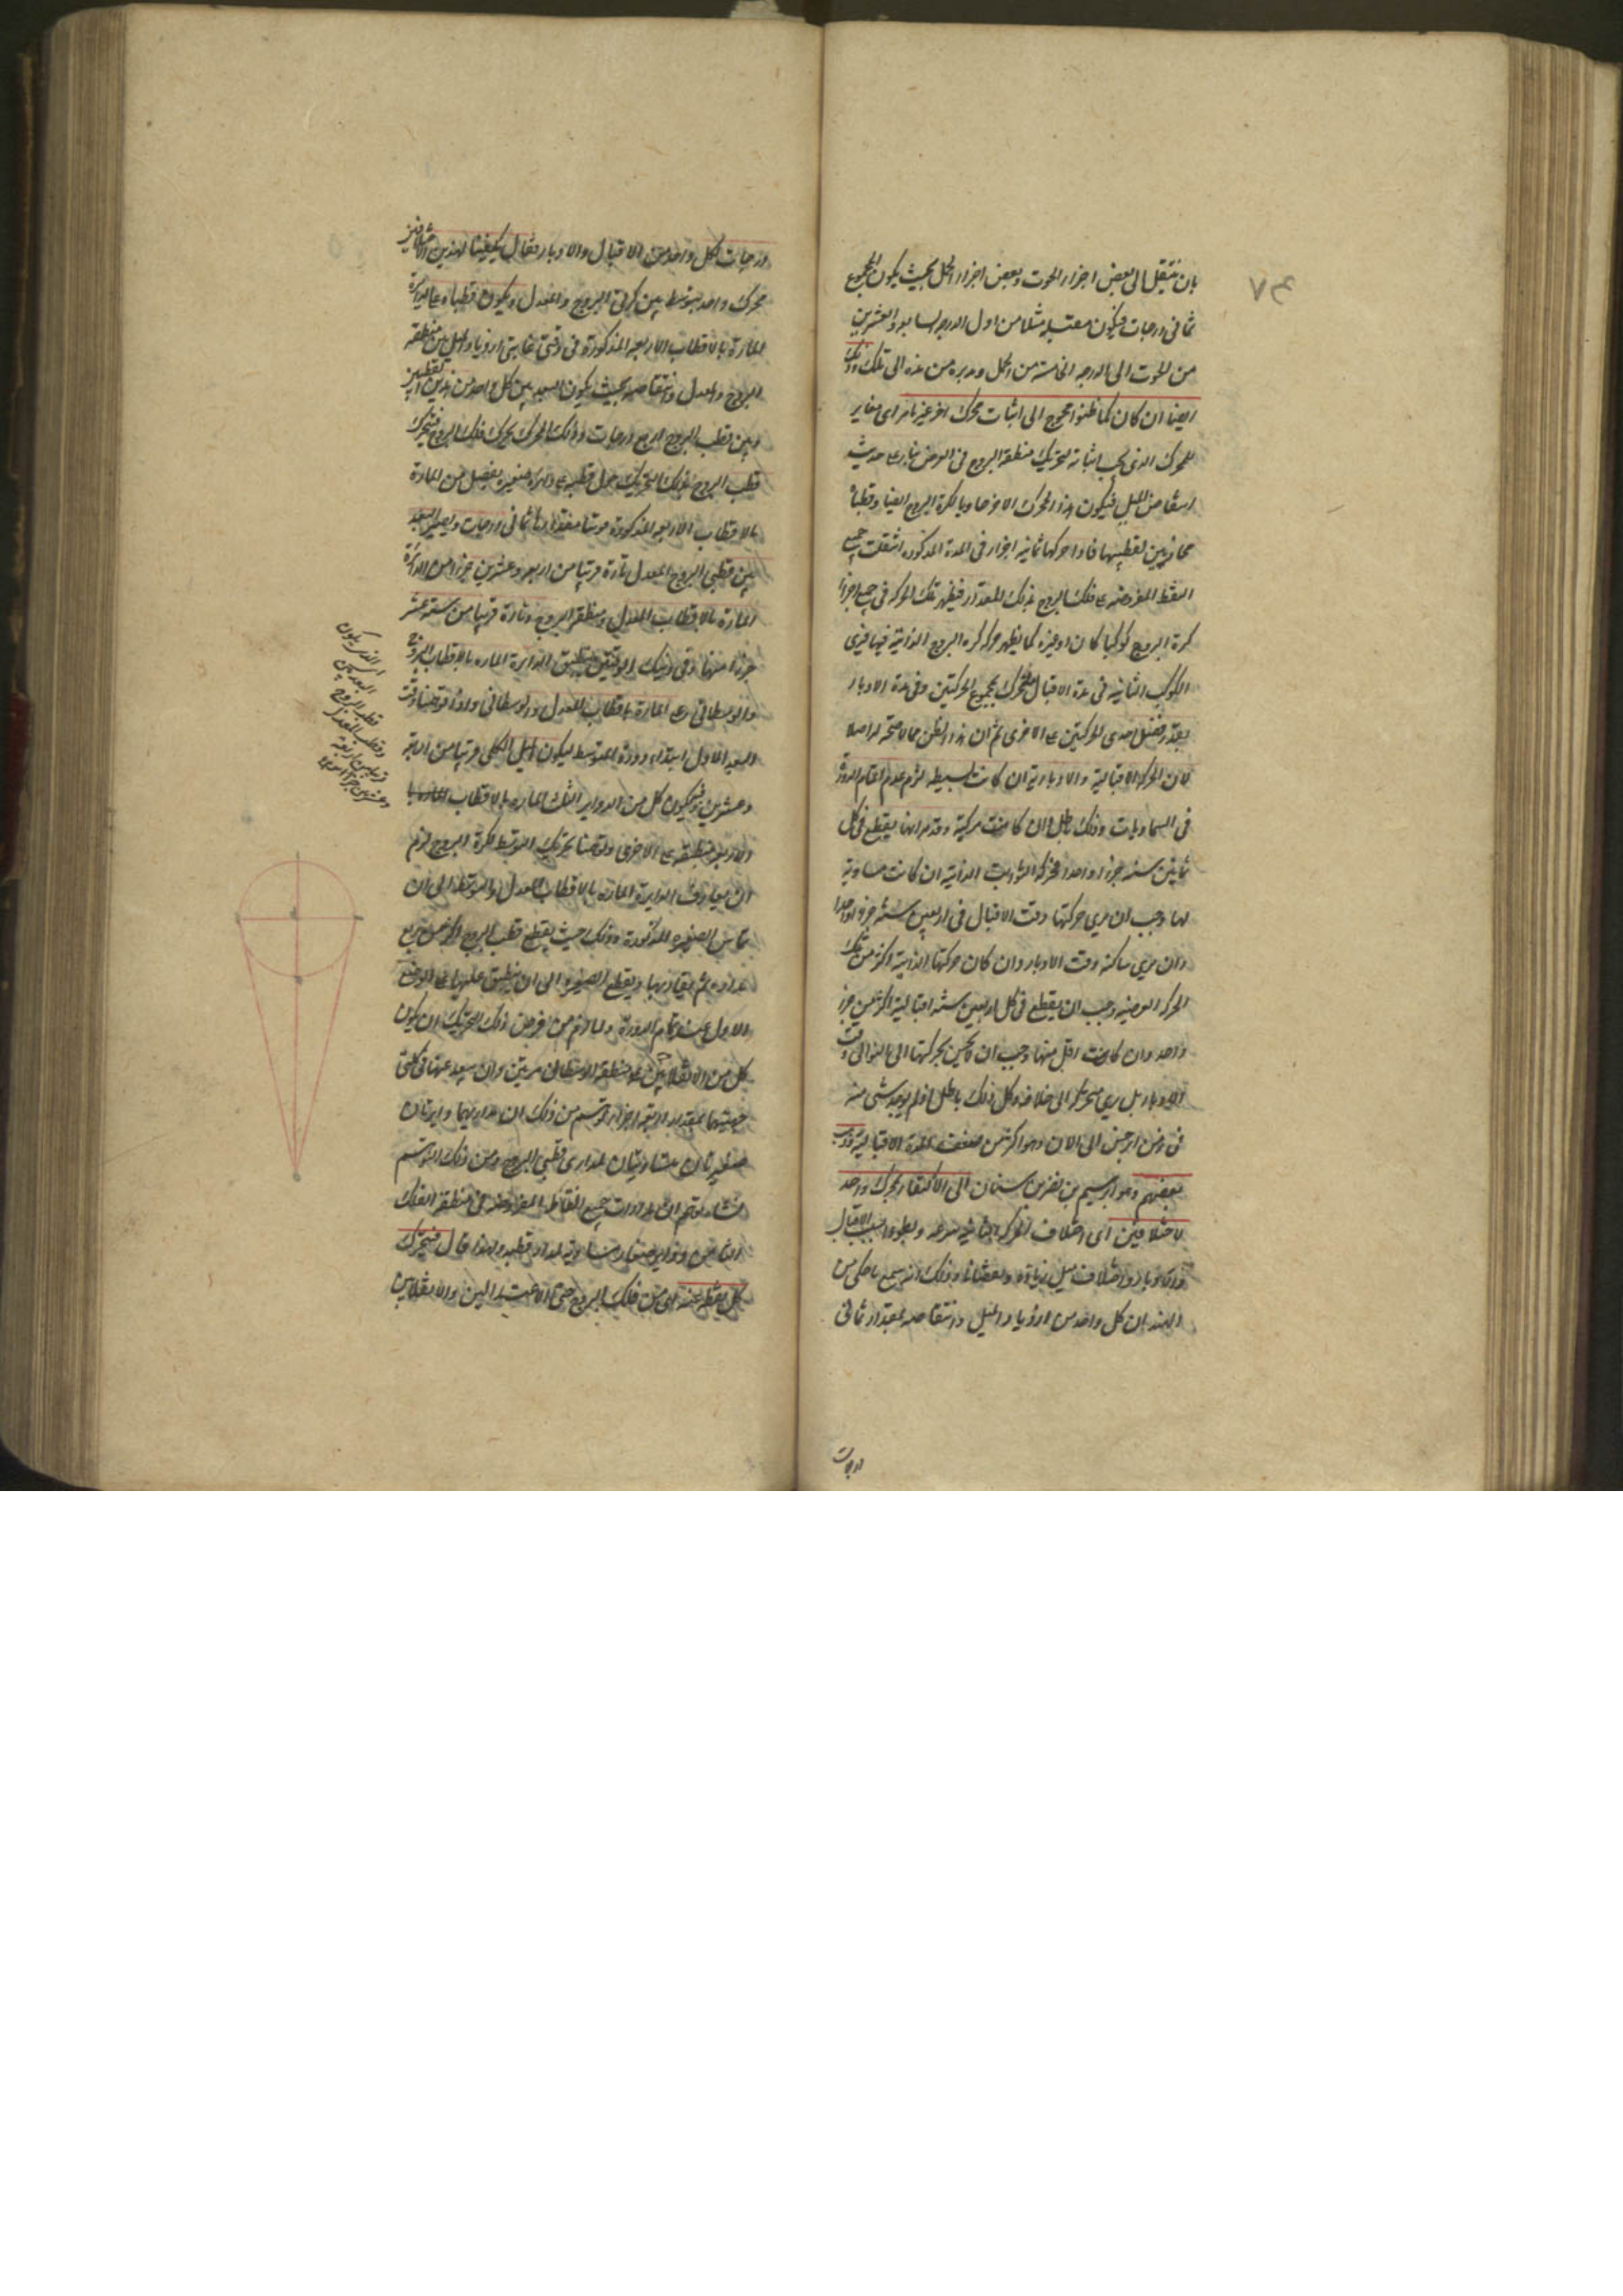 ٧٤
بان ينتقل الى بعض اجزاء الحوت وبعض اجزاء الحمل بحيث يكون المجموع
ثمانى درجات فيكون مقبله مثلا من اول الدرجه السابعه والعشرين
من الحوت الى الدرجه الخامسة من الحمل ومدبره من هذه الى تلك وذلك
ايضا ان كان كما ظنوا محوج الى اثبات محرك اخر غير ما مر اى مغاير
للمحرك الذى يجب اثباته لتحريك منطقة البروج فى العرض بناء على حديث
انتقاص الميل فيكون هذا المحرك الاخر حاويا لكرة البروج ايضا وقطباه
محاذيين لقطبيها فاذا حركها ثمانيه اجزاء فى المدة المذكوره انتقلت جميع
النقط المفروضه على فلك البروج بذلك المقدار فيظهر تلك الحركه فى جميع اجزاء
كرة البروج كوكبا كان او غيره كما يظهر حركه كره البروج الذاتية فيها فيرى
الكوكب الثانيه فى مدة الاقبال متحرك بمجموع الحركتين وفى مدة الادبار
بقدر فضل احدى الحركتين على الاخرى ثم ان هذا الظن مما لا صحة له اصلا
لان الحركة الاقبالية والادبارية ان كانت بسيطه لزم عدم اتمام الدورة
فى السماويات وذلك باطل وان كانت مركبة وقد مر انها يقطع فى كل
ثمانين سنه جزءا واحدا فحركه الثوابت الذاتية ان كانت مساوية
لها وجب ان يرى حركتها وقت الاقبال فى اربعين سنة جزءا واحدا
وان يرى ساكنه وقت الادبار وان كان حركتها الذاتية اكثر من تلك
الحركه العرضيه وجب ان يقطع فى كل اربعين سنه اقبالية اكثر من جزء
واحد وان كانت اقل منها وجب ان لا يحس بحركتها الى التوالى وقت
الادبار بل يرى متحركه الى خلافه وكل ذلك باطل اذ لم يوجد شئ منه
فى زمن ابرخس الى الان وهو اكثر من ضعف المدة الاقبالية وذهب
بعضهم وهو ابراهيم بن سنان الى الاكتفاء بمحرك واحد
لاختلافين اى اختلاف الحركه الثانيه سرعه وبطوءا بسبب الاقبال
والادبار واختلاف الميل زيادة ونقصانا وذلك انه سمع ما حكى من
الهند ان كل واحد من ازدياد الميل وانتقاصه بمقدار ثمانى
درجات
درجات لكل واحد من الاقبال والادبار فقال يكفينا لهذين الاختلافين
محرك واحد يتوسط بين كرتى البروج والمعدل ويكون قطباه على الدائرة
المارة بالاقطاب الاربعه المذكورة فى وقتى غايتى ازدياد الميل بين منطقه
البروج والمعدل وانتقاصه بحيث يكون البعد بين كل واحد من هذين القطبين
وبين قطب البروج اربع درجات وذلك المحرك يحرك فلك البروج فيتحرك
قطب البروج بذلك التحريك حول قطبه على دائرة صغيره يفصل من المارة
بالاقطاب الاربعه المذكورة قوسا مقدارها ثمانى درجات ويصير البعد
بين قطبى البروج والمعدل تارة قريبا من اربعه وعشرين جزءا من الدائرة
المارة بالاقطاب المعدل ومنطقة البروج وتارة قريبا من سته عشر
جزءا منها وفى ذينك الوقتين ينطبق الدايرة الماره بالاقطاب البروج
والوسطانى على المارة باقطاب المعدل والوسطانى واذا فرضنا وقت
البعد الاول ابتداء دورة المتوسط ليكون الميل الكلى قريبا من اربعة
وعشرين فيكون كل من الدواير الثلث الماره بالاقطاب
الاربعه منطبقه على الاخرى وفرضنا تحريك المتوسط لكرة البروج لزم
ان يفارق الدايرة المارة بالاقطاب المعدل والمتوسط الى ان
يماس الصغيره المذكورة وذلك حيث يقطع قطب البروج اكثر من ربع
مداره ثم يقاربها ويقطع الصغيره الى ان ينطبق عليها على الوضع
الاول عند تمام الدورة ولما لزم من فرض ذلك التحريك ان يكون
كل من الانقلابين على منطقة الوسطانى مرتين وان يبعد عنها فى كلتى
جهتيها بمقدار اربعة اجزاء توهم من ذلك ان مداريهما دايرتان
صغيرتان متساويتان لمدارى قطبى البروج ومن ذلك التوهم
نشاء توهم ان مدارات جميع النقاط المفروضه فى منطقة الفلك
الثامن دواير صغار مساويه لمدار قطبه ولهذا قال فيتحرك
كل نقطه عنده من فلك البروج حتى الاعتدالين والانقلابين
اى الذى يكون
البعد بين
قطب البروج
وقطب المعدل
قريبا من اربعة
وعشرين جزءا